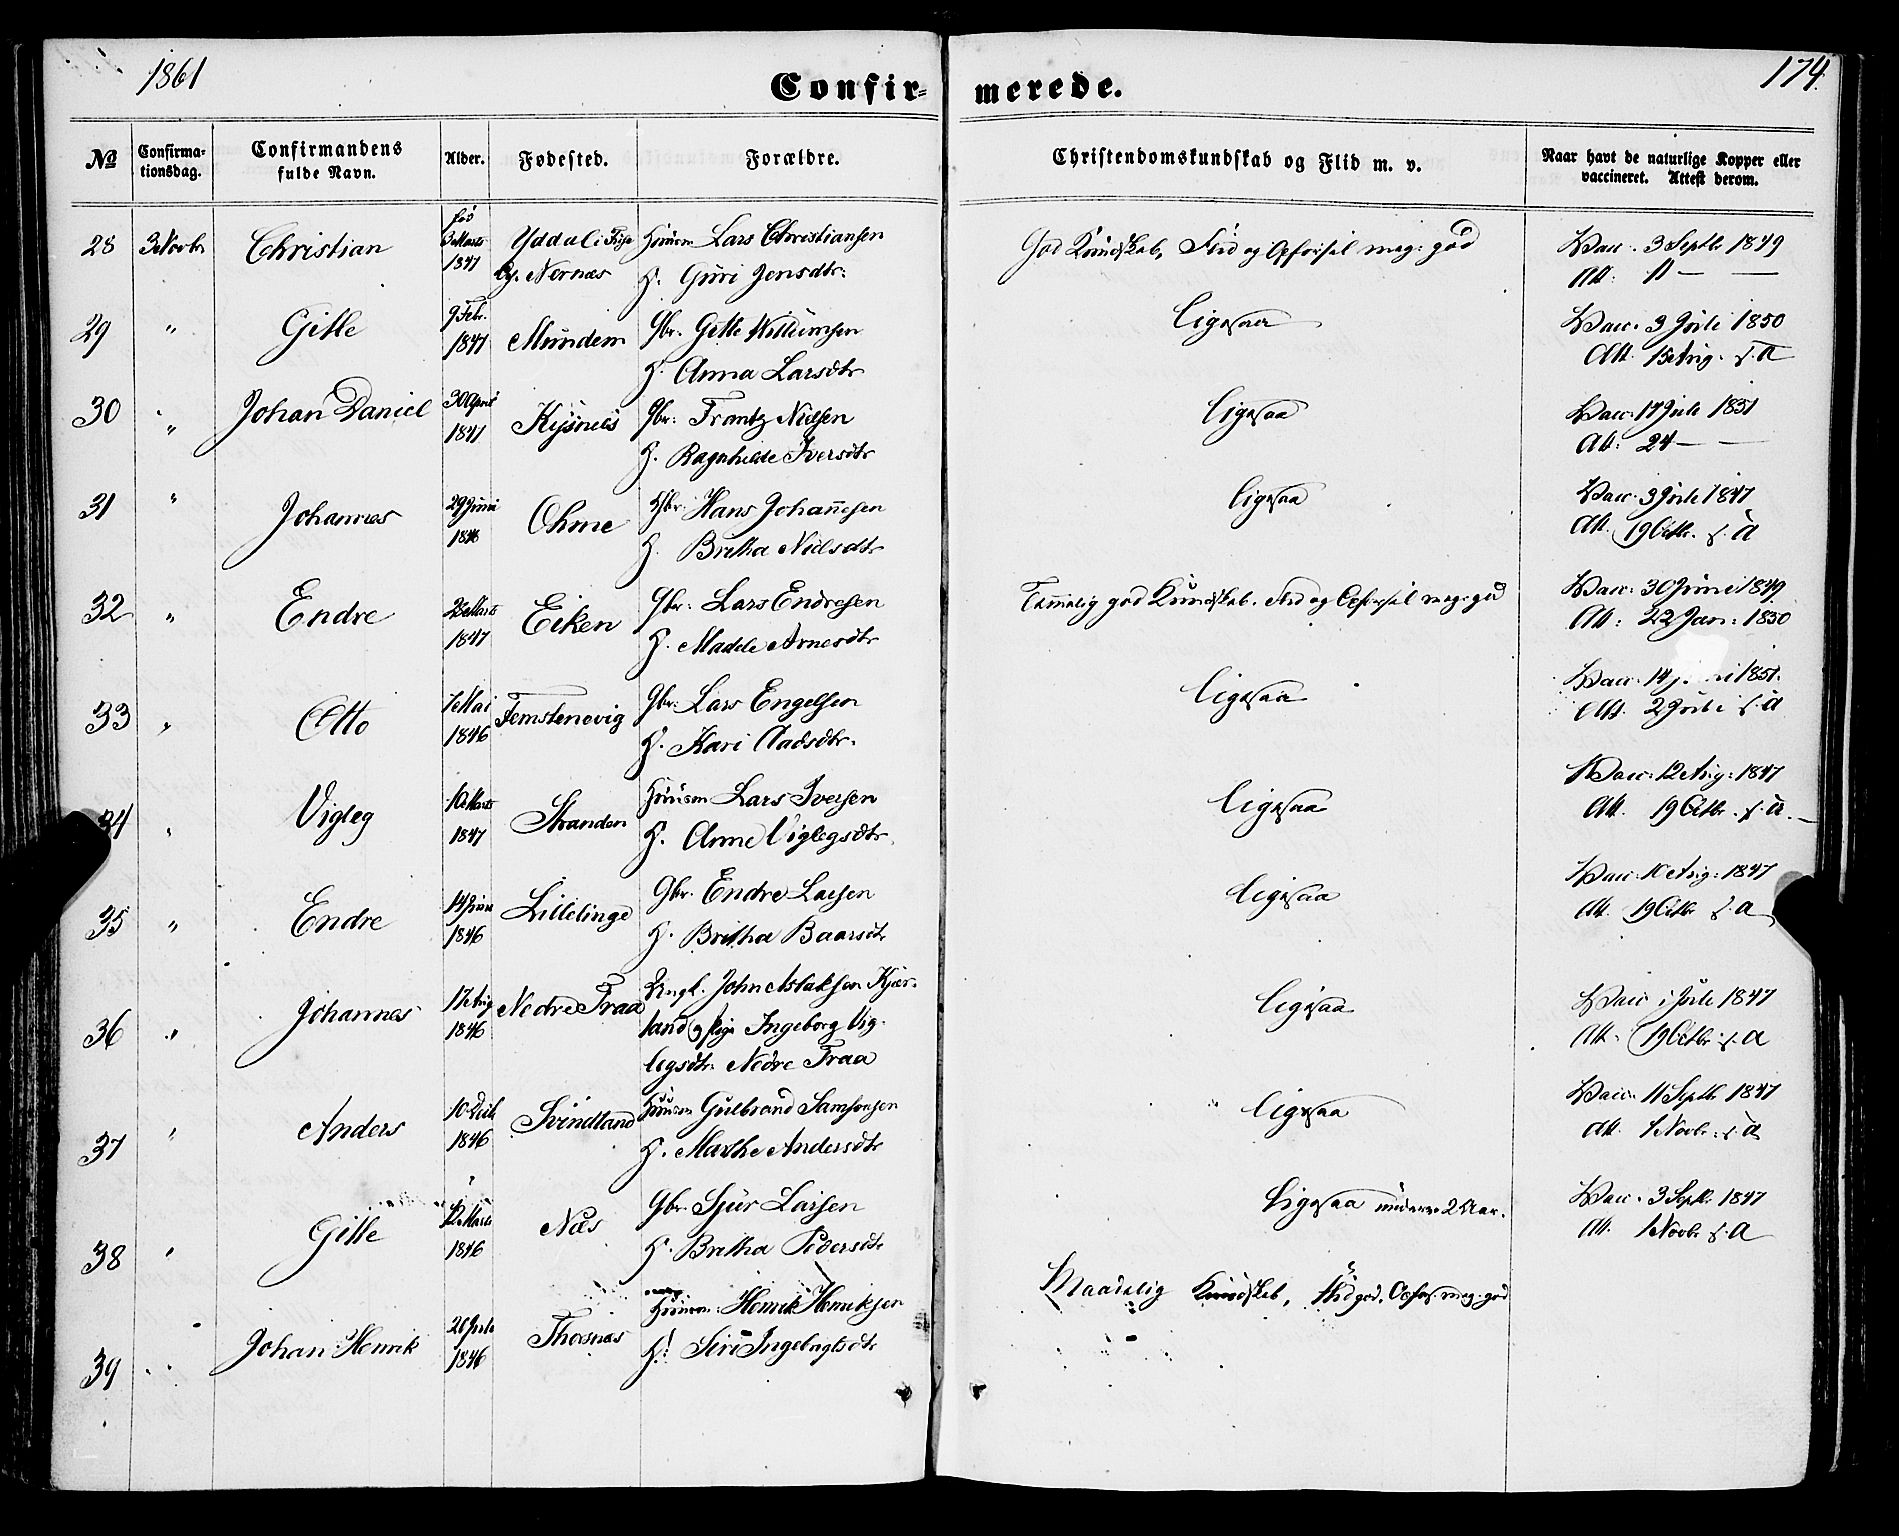 1861
Confir-
merede.
174.
№
Confirma-
tionsdag.
Confirmandens
fulde Navn.
Alder.
Fødested.
Forældre.
Christendomskundskab og Flid m. v.
Naar havt de naturlige Kopper eller
vaccineret. Attest derom.
28 3 Novbr Christian
fød
3 Marts
1847
Nernæs
Huusm Lars Christiansen
H. Guri Jensdtr:
God Kundskab, Flid og Opførsel meg: god
Vacc. 3 Septbr 1849
Att: 11 — —
29 " Gitle
9 Febr.
1847
Mundem
Gbr. Gitle Willumsen
H. Anna Larsdtr
Ligesaa
Vacc. 3 Juli 1850
Att. 15 Aug. s. A
30 " Johan Daniel
30 April
1847
Kysnæs
Gbr: Frantz Nielsen
H. Ragnhilde Iversdtr
Ligesaa
Vacc. 17 Juli 1851
Att: 24 — —
31 " Johannes
29 Juni
1846
Ohme
Gbr. Hans Johannesen
H. Britha Nielsdtr
Ligesaa
Vacc. 3 Juli 1847
Att. 19 Octbr. s. A
32 " Endre
Marts
1847
Eiken
Gbr: Lars Endresen
H. Madele Arnesdtr
Temmelig god Kundskab. Flid og Opførsel meg: god
Vacc: 30 Juni 1849
Att: 22 Jan: 1850
33 " Otto
1 Mai
1846
Femstenevig
Gbr: Lars Engelsen
H. Kari Aadsdtr.
Ligesaa
Vacc. 14 1851.
Att. 2 Juli s. A
34 " Vigleg
10 Marts
1847
Stranden
Huusm Lars Iversen
H. Anne Viglegsdtr.
Ligesaa
Vacc: 12 Aug: 1847
Att. 19 Octbr. s. A.
35 " Endre
14 Juni
1846
Lillelinge
Gbr. Endre Larsen
H. Britha Baarsdtr
Ligesaa
Vacc. 10 Aug: 1847
Att. 19 Octbr s. A
36 " Johannes
17 Aug
1846
Nedre Traa
Ungk. John Aslaksen Kjær-
land og Pige Ingeborg Vig-
legsdtr. Nedre Traa
Ligesaa
Vacc 1 Juli 1847
Att. 19 Octbr s. A
37 " Anders
10 Decb
1846
Svindland
Huusm Gulbrand Samsonsen
H. Marthe Andersdtr
Ligesaa
Vacc. 11 Septb. 1847
Att. 1 Novbr. s. A
38 " Gitle
12 Marts
1846
Næs
Gbr. Sjur Larsen
H. Britha Pedersdtr
Ligesaa underv. 2 Aar.
Vacc. 3 Septbr. 1847
Att. 1 Novbr s. A
39 " Johan Henrik
Juli
1846
Thorsnæs
Huusm. Henrik Henriksen
H. Siri Ingebrigtsdtr
Maadelig Kundskab, Flid god. Opfør. meg: god